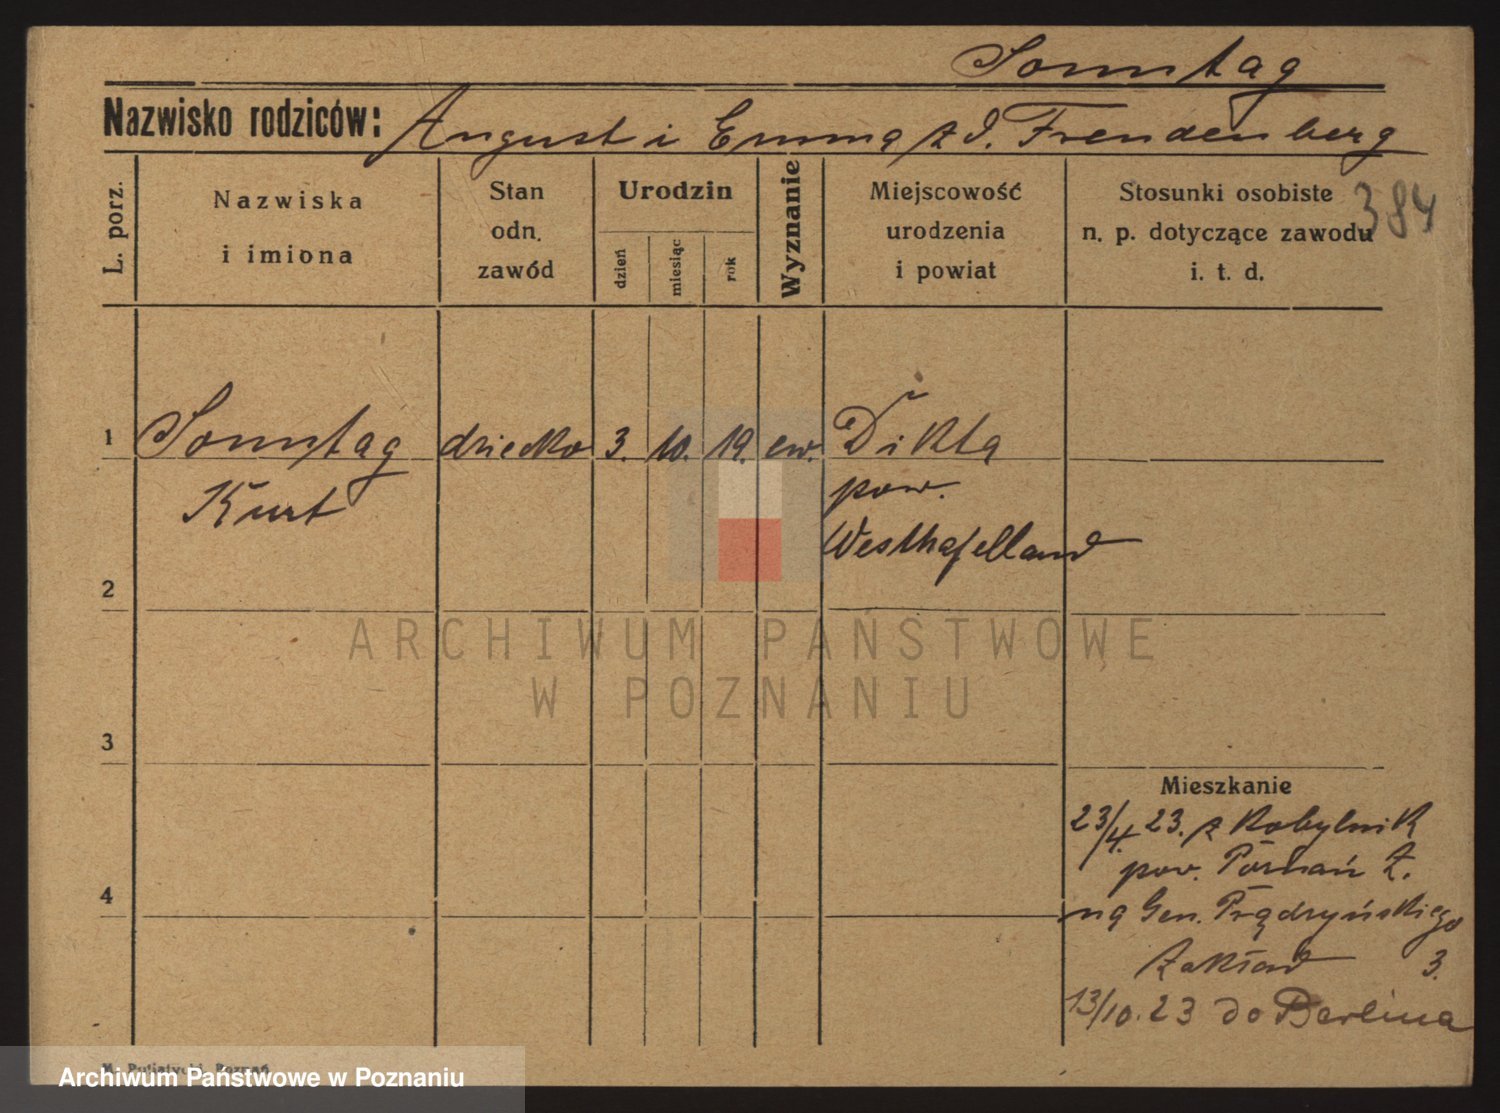 Sonntag
Nazwisko rodziców: August i Emma z d. Freudenberg
384
L. porz.
Nazwiska
i imiona
Stan
odn.
zawód
Urodzin
dzień
miesiąc
rok
Wyznanie
Miejscowość
urodzenia
i powiat
Stosunki osobiste
n. p. dotyczące zawodu
i. t. d.
1 Sonntag dziecko 3. 10. 19. ew.
Kurt
pow.
2
3
4
Mieszkanie
23/4. 23. z Kobylnik
pow. Poznań Z.
na Gen. Prądzyńskiego
Zakład 3.
13/10. 23 do Berlina
ARCHIWUM PAŃSTWOWE
W POZNANIU
Poznań
Archiwum Państwowe w Poznaniu